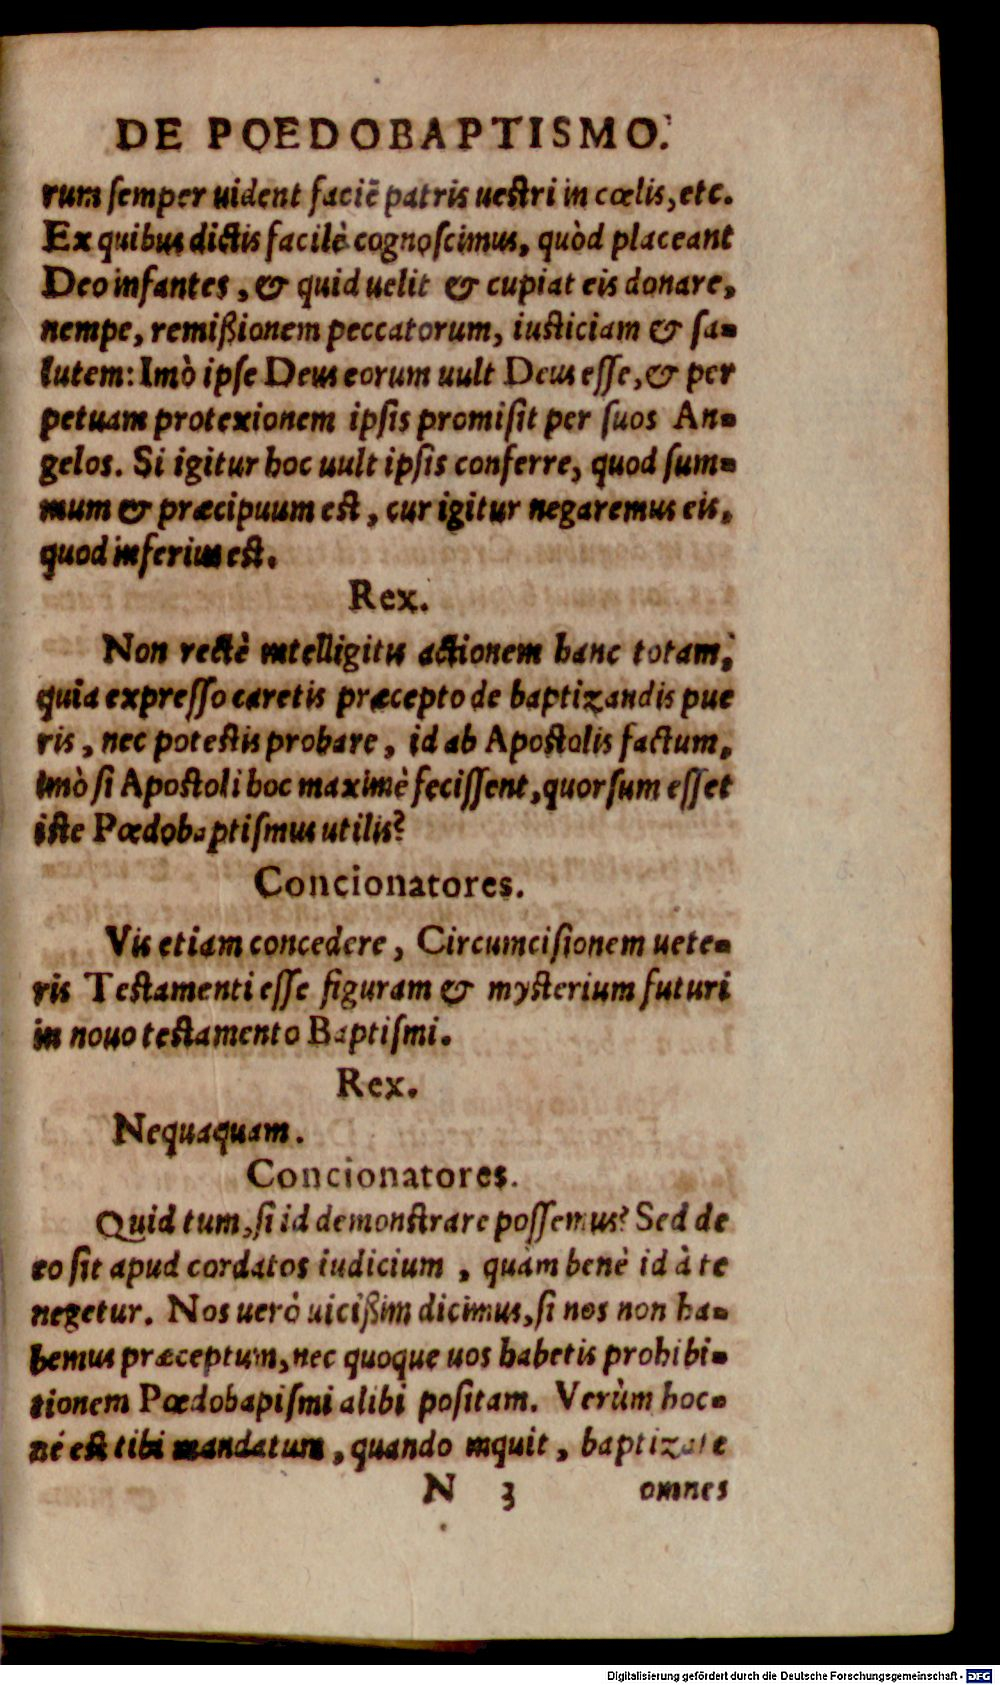 DE POEDOBAPTISMO.
rum semper uident faciẽ patris uestri in cœlis, etc.
Ex quibus dictis facilè cognoscimus, quòd placeant
Deo infantes, & quid uelit & cupiat eis donare,
nempe, remißionem peccatorum, iusticiam & sa-
lutem: Imò ipse Deus eorum uult Deus esse, & per
petuam protexionem ipsis promisit per suos An-
gelos. Si igitur hoc uult ipsis conferre, quod sum-
mum & præcipuum est, cur igitur negaremus eis,
quod inferius est.
Rex.
Non rectè intelligitis actionem hanc totam,
quia expresso caretis præcepto de baptizandis pue
ris, nec potestis probare, id ab Apostolis factum,
imò si Apostoli hoc maximè fecissent, quorsum esset
iste Pœdobaptismus utilis?
Concionatores.
Vis etiam concedere, Circumcisionem uete-
ris Testamenti esse figuram & mysterium futuri
in nouo testamento Baptismi.
Rex.
Nequaquam.
Concionatores.
Quid tum, si id demonstrare possemus? Sed de
eo sit apud cordatos iudicium, quàm benè id à te
negetur. Nos uerò uicißim dicimus, si nos non ha-
bemus præceptum, nec quoque uos habetis prohibi-
tionem Pœdobapismi alibi positam. Verùm hoc-
né est tibi mandatum, quando inquit, baptizate
N 3 omnes
Digitalisierung gefördert durch die Deutsche Forschungsgemeinschaft - DFG